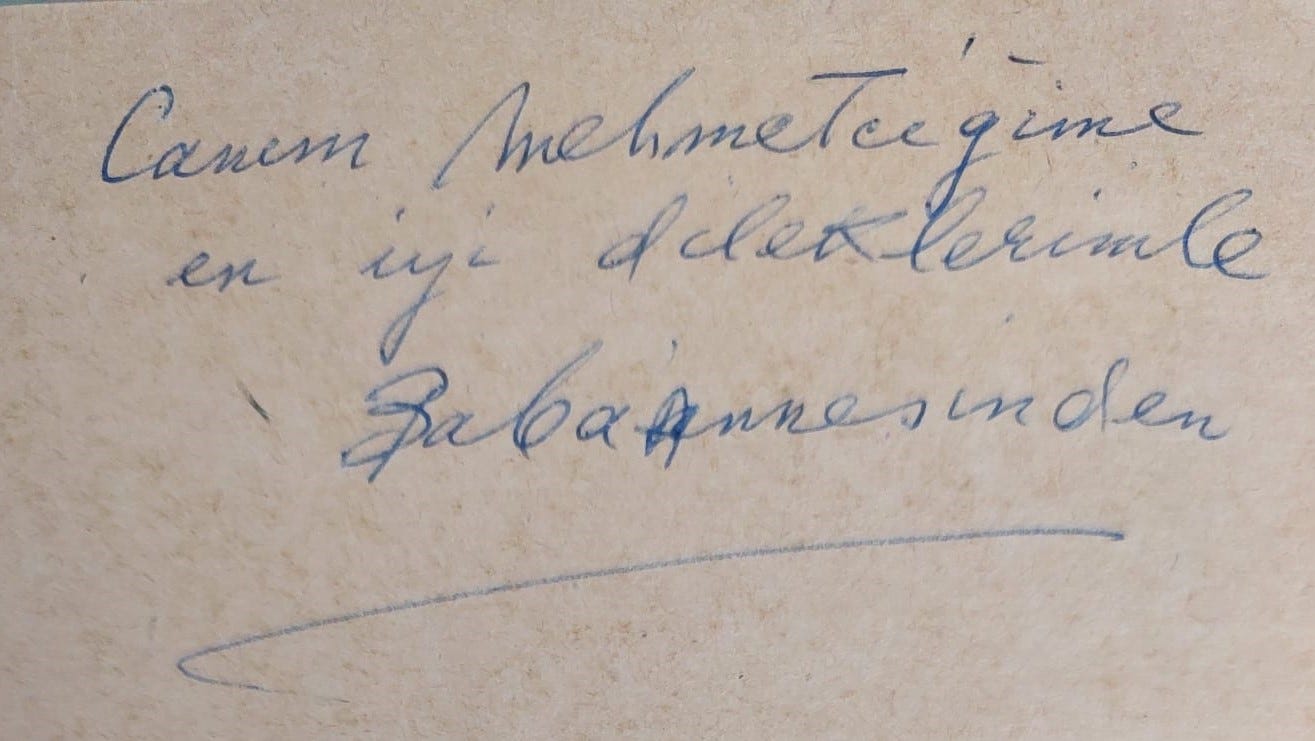 Canım Mehmetciğime
en iyi dileklerimle
Babaannesinden